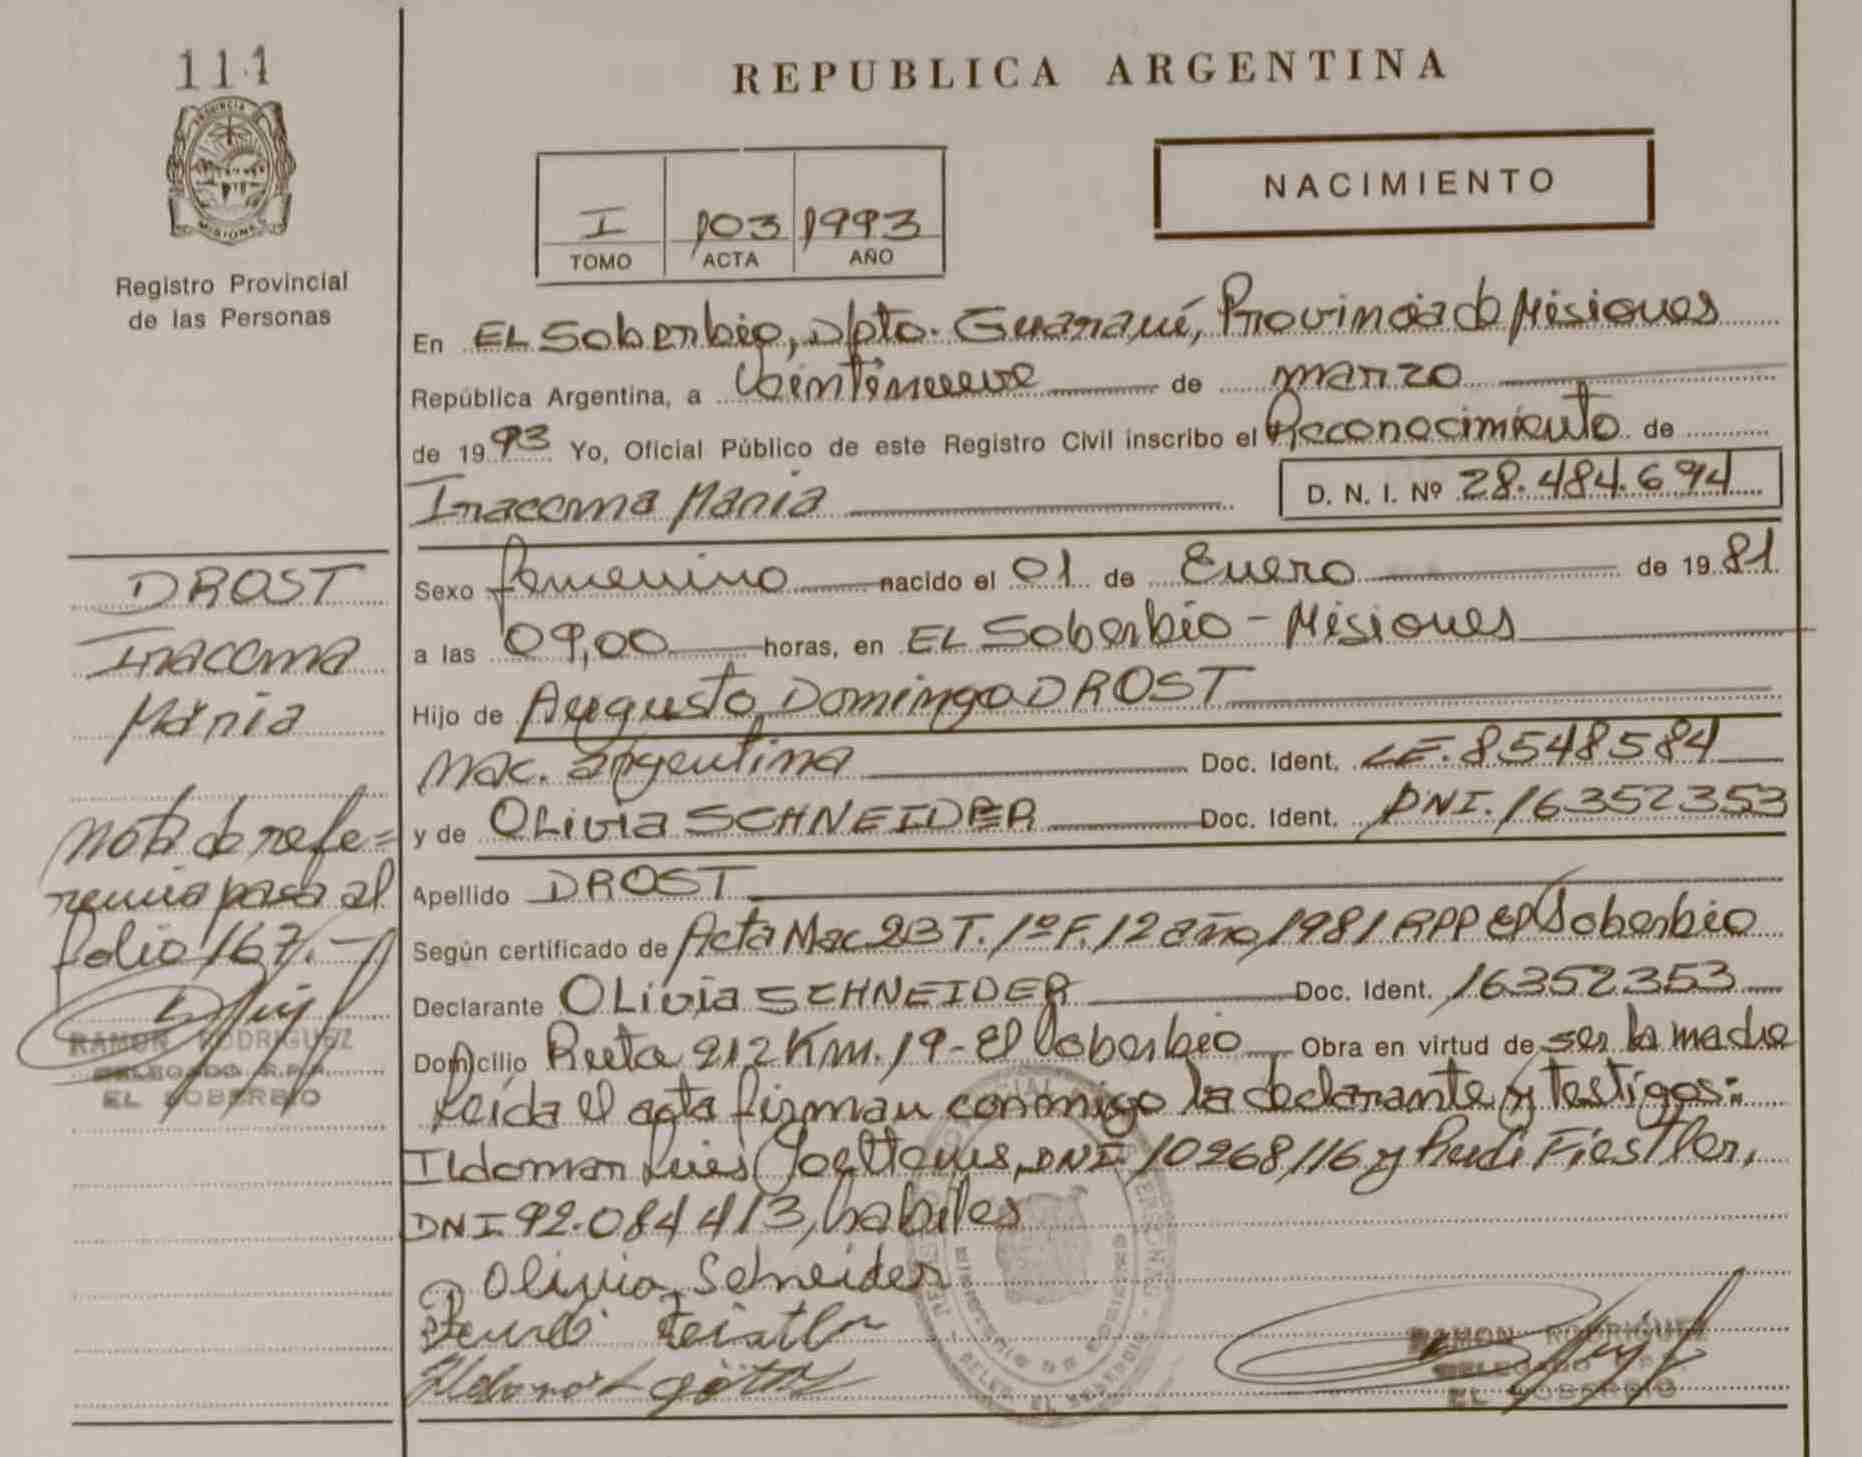 111
REPUBLICA ARGENTINA
PROVINCIA DE
MISIONES
Registro Provincial
de las Personas
I 103 1993
TOMO ACTA AÑO
NACIMIENTO
En EL Soberbio, Dpto. Guaraní, Provincia de Misiones
República Argentina, a Veintinueve de marzo
de 1993 Yo, Oficial Público de este Registro Civil inscribo el Reconocimiento de
Iracema Maria D. N. I. Nº 28.484.694
Sexo femenino nacido el 01 de Enero de 1981
a las 09,00 horas, en EL Soberbio - Misiones
Hijo de Augusto Domingo DROST
Nac. argentina Doc. Ident. LE. 8548584
y de OLivia SCHNEIDER Doc. Ident. DNI. 16352353
Apellido DROST
Según certificado de Acta Nac 23 T. 1º F. 12 año 1981 RPP El Soberbio
Declarante OLivia SCHNEIDER Doc. Ident. 16352353
Domicilio Ruta 212 Km. 19 - El Soberbio Obra en virtud de ser la madre
Leida el acta firman conmigo la declarante y testigos:
Ildomar Luis DNI 10268116 y Rudi Fiestler,
DNI 92.084413, habiles
Olivia Schneider
Feistler
RAMON RODRIGUEZ
DELEGADO R.P.P.
EL SOBERBIO
DROST
Iracema
Maria
Nota de refe=
rencia pasa al
folio 167.-
RAMON RODRIGUEZ
DELEGADO R.P.P.
EL SOBERBIO